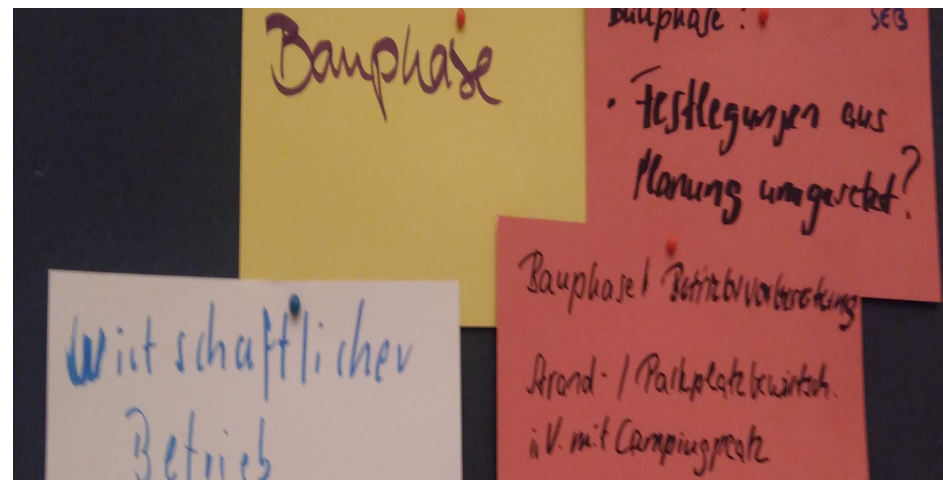 Bauphase
Bauphase :
SEB
· Festlegungen aus
Planung umgesetzt?
Bauphase / Betriebsvorbereitung
Strand- / Parkplatzbewirtsch.
i.V. mit Campingplatz
Wirtschaftlicher
Betrieb